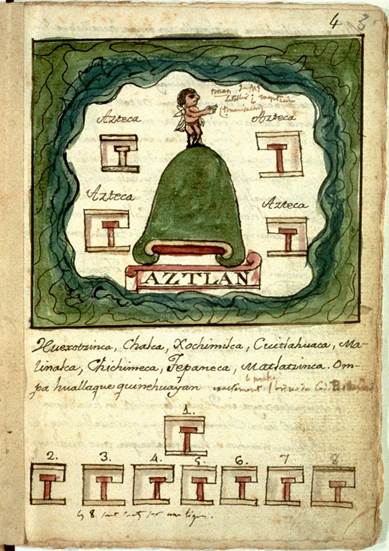 4 3
Azteca Azteca
Azteca Azteca
AZTLAN
Huexotzinca, Chalca, Xochimilca, Cuitlahuaca, Ma-
linalca, Chichimeca, Tepaneca, Matlatzinca. Om-
pa huallaque quinehuayan
1.
2. 3. 4. 5. 6. 7 8